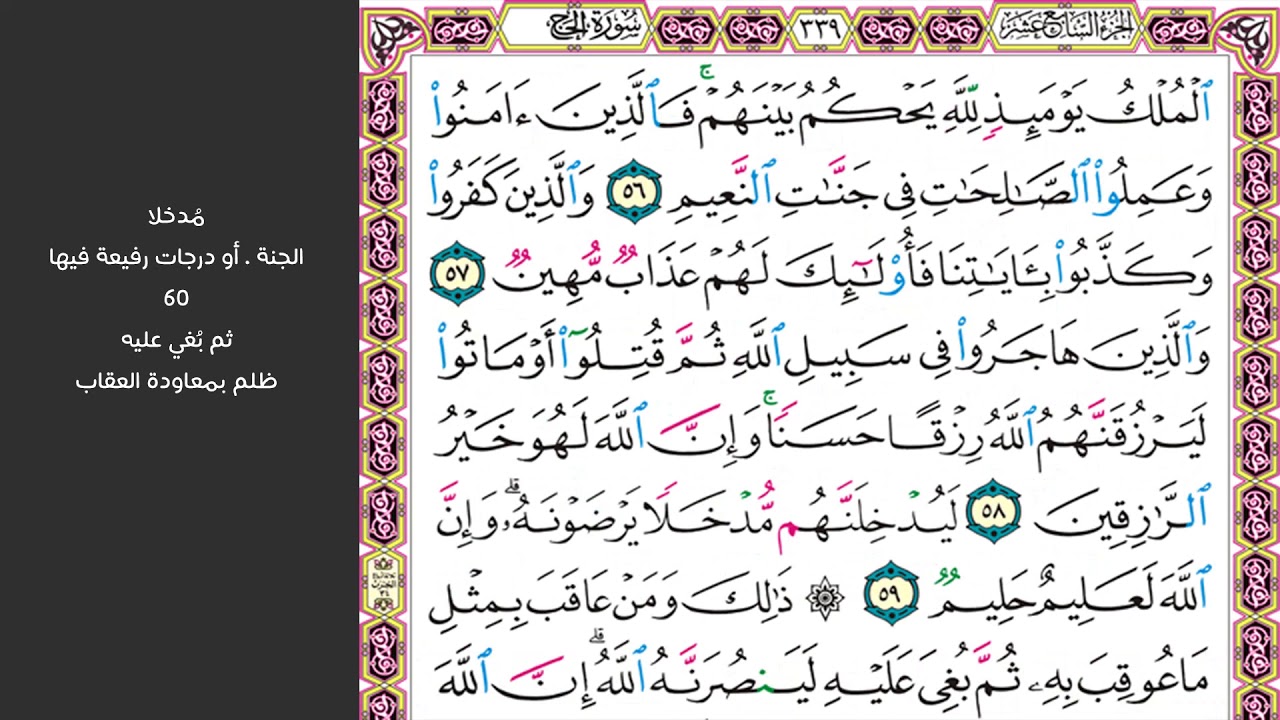 الجزء السابع عشر
٣٣٩
سورة الحج
ٱلْمُلْكُ يَوْمَئِذٍ لِّلَّهِ يَحْكُمُ بَيْنَهُمْ ۚ فَٱلَّذِينَ ءَامَنُوا۟
وَعَمِلُوا۟ ٱلصَّـٰلِحَـٰتِ فِى جَنَّـٰتِ ٱلنَّعِيمِ ٥٦ وَٱلَّذِينَ كَفَرُوا۟
وَكَذَّبُوا۟ بِـَٔايَـٰتِنَا فَأُو۟لَـٰٓئِكَ لَهُمْ عَذَابٌ مُّهِينٌ ٥٧
وَٱلَّذِينَ هَاجَرُوا۟ فِى سَبِيلِ ٱللَّهِ ثُمَّ قُتِلُوٓا۟ أَوْ مَاتُوا۟
لَيَرْزُقَنَّهُمُ ٱللَّهُ رِزْقًا حَسَنًا ۚ وَإِنَّ ٱللَّهَ لَهُوَ خَيْرُ
ٱلرَّٰزِقِينَ ٥٨ لَيُدْخِلَنَّهُم مُّدْخَلًا يَرْضَوْنَهُۥ ۗ وَإِنَّ
ٱللَّهَ لَعَلِيمٌ حَلِيمٌ ٥٩ ۞ ذَٰلِكَ وَمَنْ عَاقَبَ بِمِثْلِ
مَا عُوقِبَ بِهِۦ ثُمَّ بُغِىَ عَلَيْهِ لَيَنصُرَنَّهُ ٱللَّهُ ۗ إِنَّ ٱللَّهَ
مُدخلا
الجنة . أو درجات رفيعة فيها
60
ثم بُغي عليه
ظلم بمعاودة العقاب